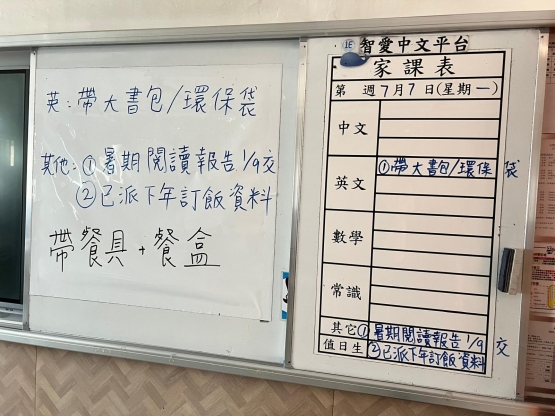 英：帶大書包/環保袋
其他：①暑期閱讀報告1/9交
②已派下年訂飯資料
帶餐具+餐盒
1E 智愛中文平台
家課表
第 週7月7日(星期一)
中文
英文 ①帶大書包/環保袋
數學
常識
其它 ①暑期閱讀報告1/9交
值日生 ②已派下年訂飯資料